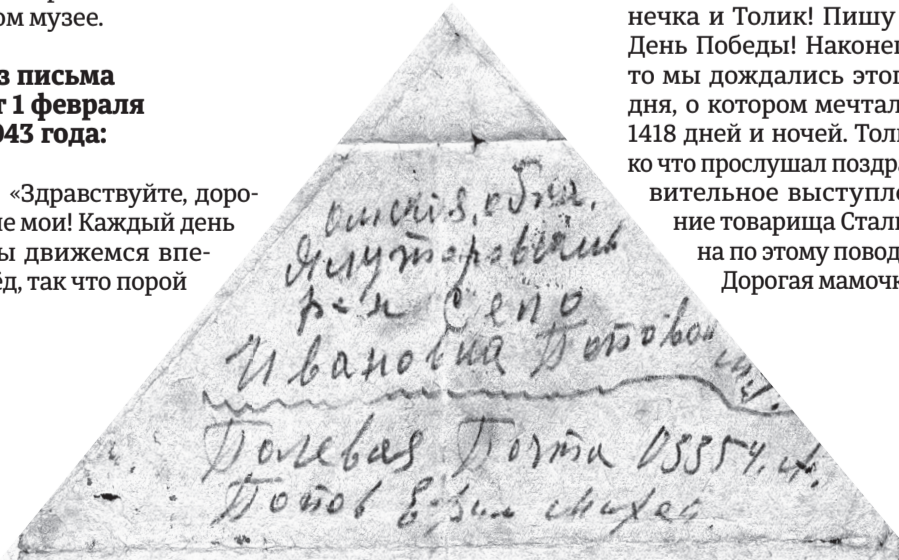 ом музее.
з письма
т 1 февраля
943 года:
«Здравствуйте, доро-
ие мои! Каждый день
ы движемся впе-
ёд, так что порой
омская, обл.
Ялуторовский
р-н Село
Ивановка Поповой
Полевая Почта
Попов
нечка и Толик! Пишу
День Победы! Наконец
то мы дождались этог
дня, о котором мечтал
1418 дней и ночей. Толь
ко что прослушал поздра
вительное выступле
ние товарища Стали
на по этому повод
Дорогая мамочк